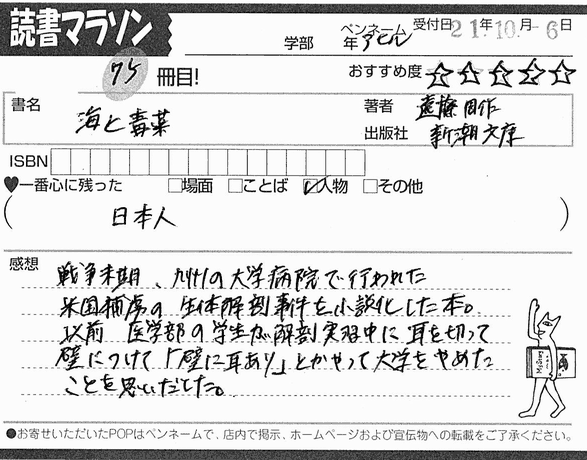 読書マラソン
学部 年 ペンネーム アセム 受付日 21年10月-6日
75冊目!
おすすめ度 ☆☆☆☆☆
書名 海と毒薬
著者 遠藤周作
出版社 新潮文庫
ISBN
♥一番心に残った □場面 □ことば ☑人物 □その他
( 日本人 )
感想
戦争末期、九州の大学病院で行われた
米国捕虜の生体解剖事件を小説化した本。
以前 医学部の学生が解剖実習中に耳を切って
壁につけて「壁に耳あり」とかやって大学をやめた
ことを思いだした。
●お寄せいただいたPOPはペンネームで、店内で掲示、ホームページおよび宣伝物への転載をご了承ください。